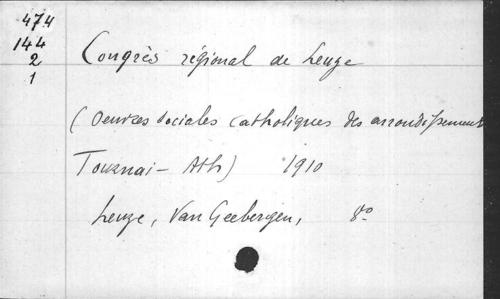 474
144
2
1
Congrès régional de Leuze
(Oeuvres sociales catholiques des arrondissement
Tournai - Ath) 1910
Leuze, Van Geebergen, 8°